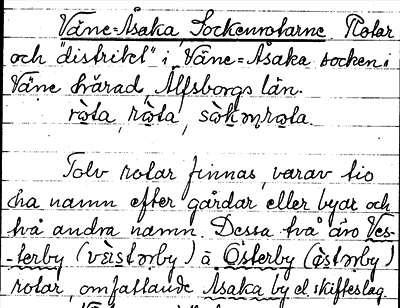 Väne-Åsaka Sockenrotarne. Rotar
och "distrikt" i Väne-Åsaka socken i
Väne härad, Älfsborgs län.
ròta, ròta, sòkənrota.
Tolv rotar finnas, varav tio
ha namn efter gårdar eller byar och
två andra namn. Dessa två äro Ves-
-terby (vèstərby) å Österby (östərby)
rotar, omfattande Åsaka by el. skifteslag